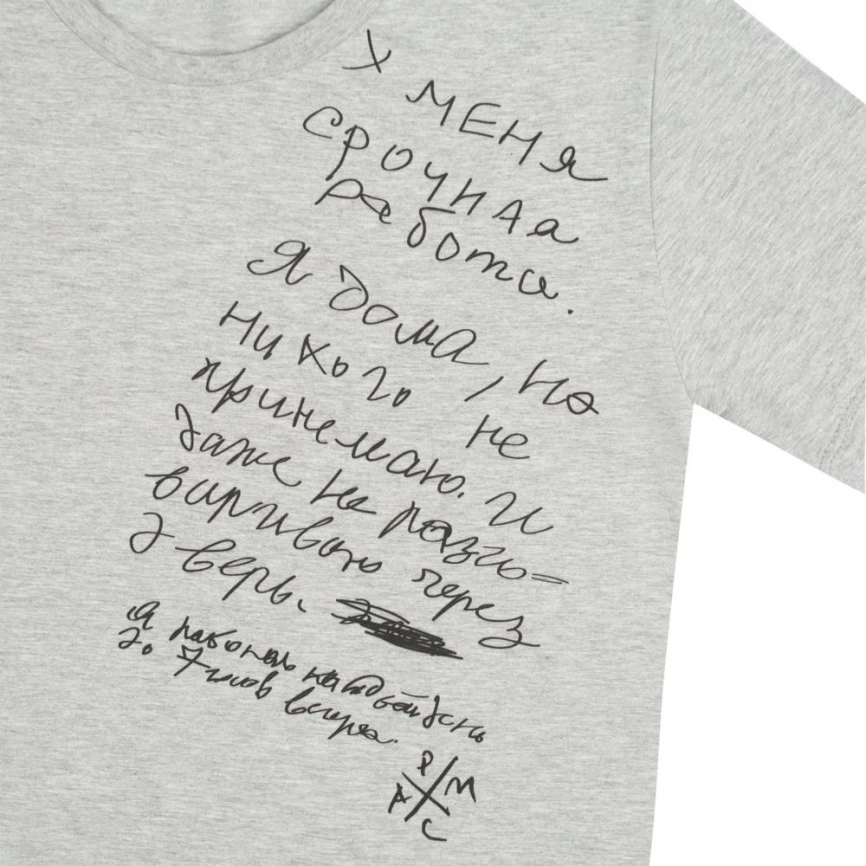 У МЕНЯ
СРОЧНАЯ
работа.
Я дома, но
никого не
принемаю. И
даже не разго=
вариваю через
дверь.
Я работаю каждый день
до 7 часов вечера.
Р М
А С